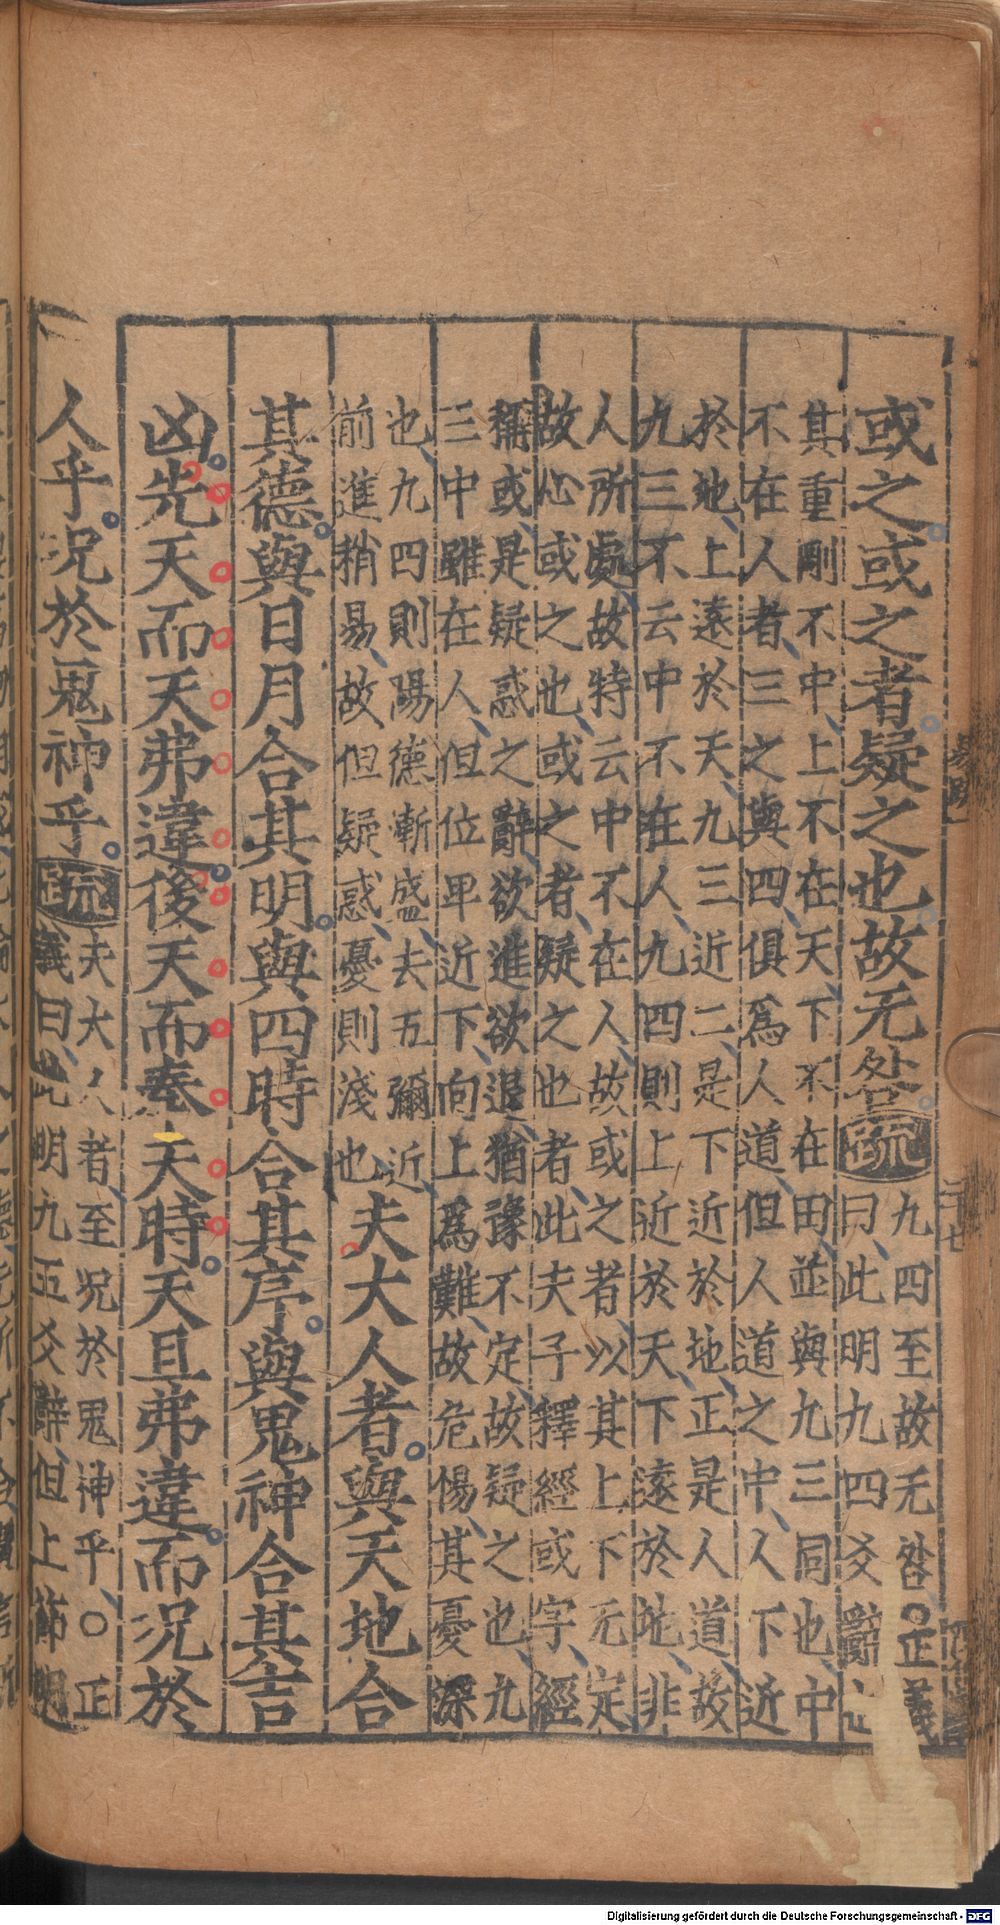 或之或之者疑之也故无咎疏九四至故无咎○正義
曰此明九四爻辭也
其重剛不中上不在天下不在田並與九三同也中
不在人者三之與四俱爲人道但人道之中人下近
於地上遠於天九三近二是下近於地正是人道故
九三不云中不在人九四則上近於天下遠於地非
人所處故特云中不在人故或之者以其上下无定
故心或之也或之者疑之也者此夫子釋經或字經
稱或是疑惑之辭欲進欲退猶豫不定故疑之也九
三中雖在人但位卑近下向上爲難故危惕其憂深
也九四則陽德漸盛去五彌近
前進稍易故但疑惑憂則淺也
夫大人者與天地合
其德與日月合其明與四時合其序與鬼神合其吉
凶先天而天弗違後天而奉天時天且弗違而況於
人乎況於鬼神乎疏夫大人者至況於鬼神乎○正
義曰此明九五爻辭但上節
Digitalisierung gefördert durch die Deutsche Forschungsgemeinschaft - DFG